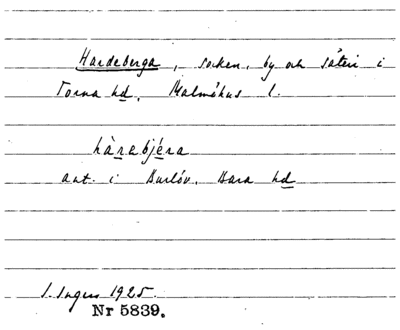 Hardeberga, socken, by och säteri i
Torna hd, Malmöhus l.
hàrabjéra
ant. i Burlöv, Bara hd
S. Ingers 1925.
Nr 5839.